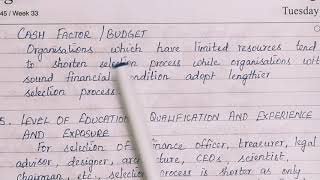 45 / Week 33
Tuesday
CASH FACTOR / BUDGET
Organisations which have limited resources tend
to shorten selection process while organisations with
sound financial condition adopt lengthier
selection process.
LEVEL OF EDUCATION, QUALIFICATION AND EXPERIENCE
AND EXPOSURE
For selection of finance officer, treasurer, legal
advisor, designer, CEOs, scientist,
chairman, etc., selection process is shorter as only